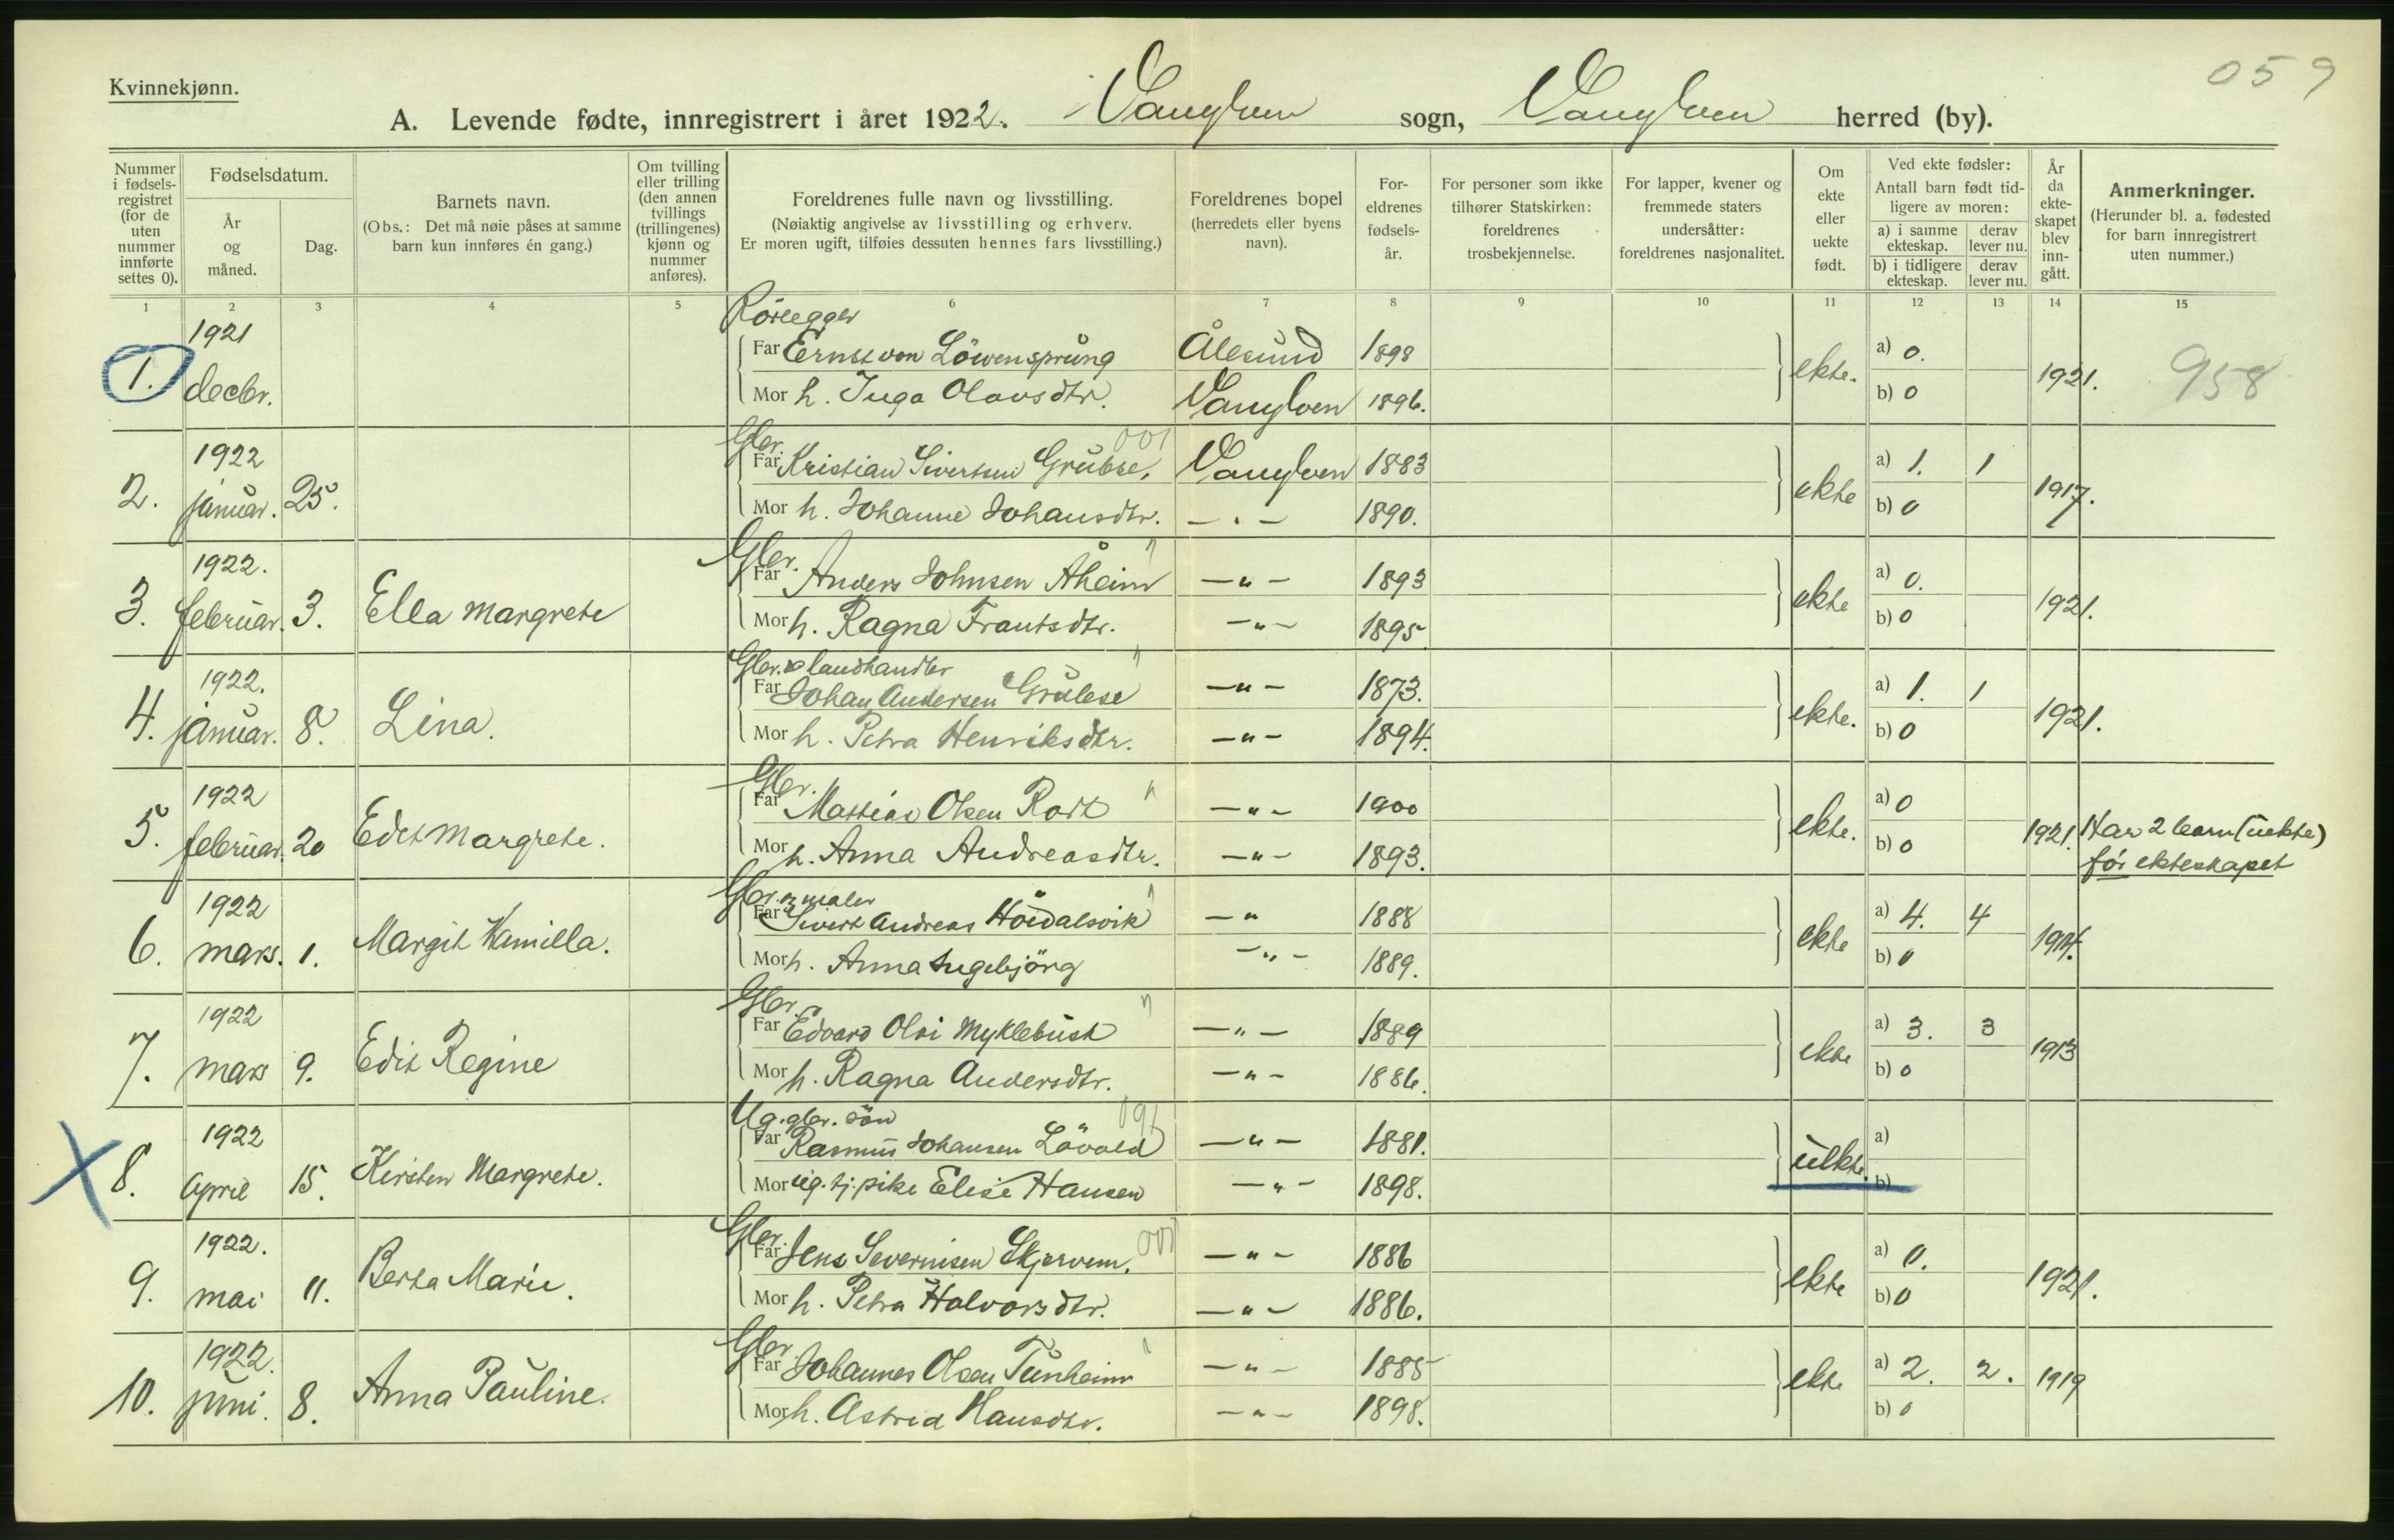 059
Kvinnekjønn.
A. Levende fødte, innregistrert i året 1922. Vanylven sogn, Vanylven herred (by).
Nummer i fødsels-registret (for de uten nummer innførte settes 0).
Fødselsdatum.
År og måned.
Dag.
Barnets navn.
(Obs.: Det må nøie påses at samme barn kun innføres én gang.)
Om tvilling eller trilling (den annen tvillings (trillingenes) kjønn og nummer anføres).
Foreldrenes fulle navn og livsstilling.
(Nøiaktig angivelse av livsstilling og erhverv.
Er moren ugift, tilføies dessuten hennes fars livsstilling.)
Foreldrenes bopel
(herredets eller byens navn).
For-eldrenes fødsels-år.
For personer som ikke tilhører Statskirken: foreldrenes trosbekjennelse.
For lapper, kvener og fremmede staters undersåtter: foreldrenes nasjonalitet.
Om ekte eller uekte født.
Ved ekte fødsler:
Antall barn født tid-ligere av moren:
a) i samme ekteskap. derav lever nu.
b) i tidligere ekteskap. derav lever nu.
År da ekte-skapet blev inn-gått.
Anmerkninger.
(Herunder bl. a. fødested for barn innregistrert uten nummer.)
1 2 3 4 5 6 7 8 9 10 11 12 13 14 15
Rörlegger
1. 1921 decbr. Far Ernst von Löwensprung Ålesund 1898 ekte. a) 0. 1921. 958
Mor h. Inga Olavsdtr. Vanylven 1896. b) 0
Gbr. 001
2. 1922 januar. 25. Far Kristian Sivertsen Grubse, Vanylven 1883 ekte a) 1. 1 1917.
Mor h. Johanne Johansdtr. — . — 1890. b) 0
Gbr. "
3. 1922. februar. 3. Ella Margrete Far Anders Johnsen Åheim — " — 1893 ekte a) 0. 1921.
Mor h. Ragna Frantsdtr. — " — 1895 b) 0
Gbr. & landhandler "
4. 1922. januar. 8. Lina. Far Johan Andersen — " — 1873. ekte. a) 1. 1 1921.
Mor h. Petra Henriksdtr. — " — 1894. b) 0
Gbr. "
5. 1922 februar. 20 Edit Margrete. Far Mattias Olsen — " — 1900 ekte. a) 0 1921. Har 2 barn (uekte)
Mor h. Anna Andreasdtr. — " — 1893. b) 0 før ekteskapet
Gbr. & maler "
6. 1922 mars. 1. Margit Kamilla. Far Sivert Andreas Höidalsvik — " 1888 ekte a) 4. 4 1914.
Mor h. Anna Ingebjörg — " — 1889. b) 0
Gbr. "
7. 1922 mars 9. Edit Regine Far Edvard Olai Myklebust — " — 1889 ekte a) 3. 3 1913
Mor h. Ragna Andersdtr. — " — 1886. b) 0
Ug. gbr. sön 091
8. 1922 April 15. Kirsten Margrete. Far Rasmus Johansen Lövold — " — 1881. uekte. a)
Mor ug. tj. pike Elise Hansen — " — 1898. b)
Gbr. 001
9. 1922. mai 11. Berta Marie. Far Jens Severinsen Skjervem. — " — 1886 ekte a) 0. 1921.
Mor h. Petra Halvorsdtr. — " — 1886. b) 0
Gbr. "
10. 1922. juni. 8. Anna Pauline. Far Johannes Olsen Tunheim — " — 1885 ekte a) 2. 2. 1919
Mor h. Astrid Hansdtr. — " — 1898. b) 0